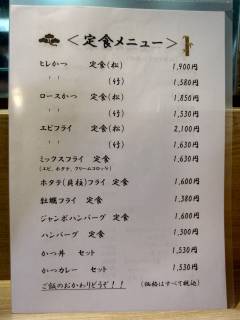 ＜定食メニュー＞
ヒレかつ 定食(松) 1,900円
〃 〃 (竹) 1,580円
ロースかつ 定食(松) 1,850円
〃 〃 (竹) 1,530円
エビフライ 定食(松) 2,100円
〃 〃 (竹) 1,630円
ミックスフライ 定食 1,630円
(エビ、ホタテ、クリームコロッケ)
ホタテ(貝柱)フライ 定食 1,600円
牡蠣フライ 定食 1,380円
ジャンボハンバーグ 定食 1,600円
ハンバーグ 定食 1,300円
かつ丼 セット 1,530円
かつカレー セット 1,530円
ご飯のおかわりどうぞ！！ (価格はすべて税込)